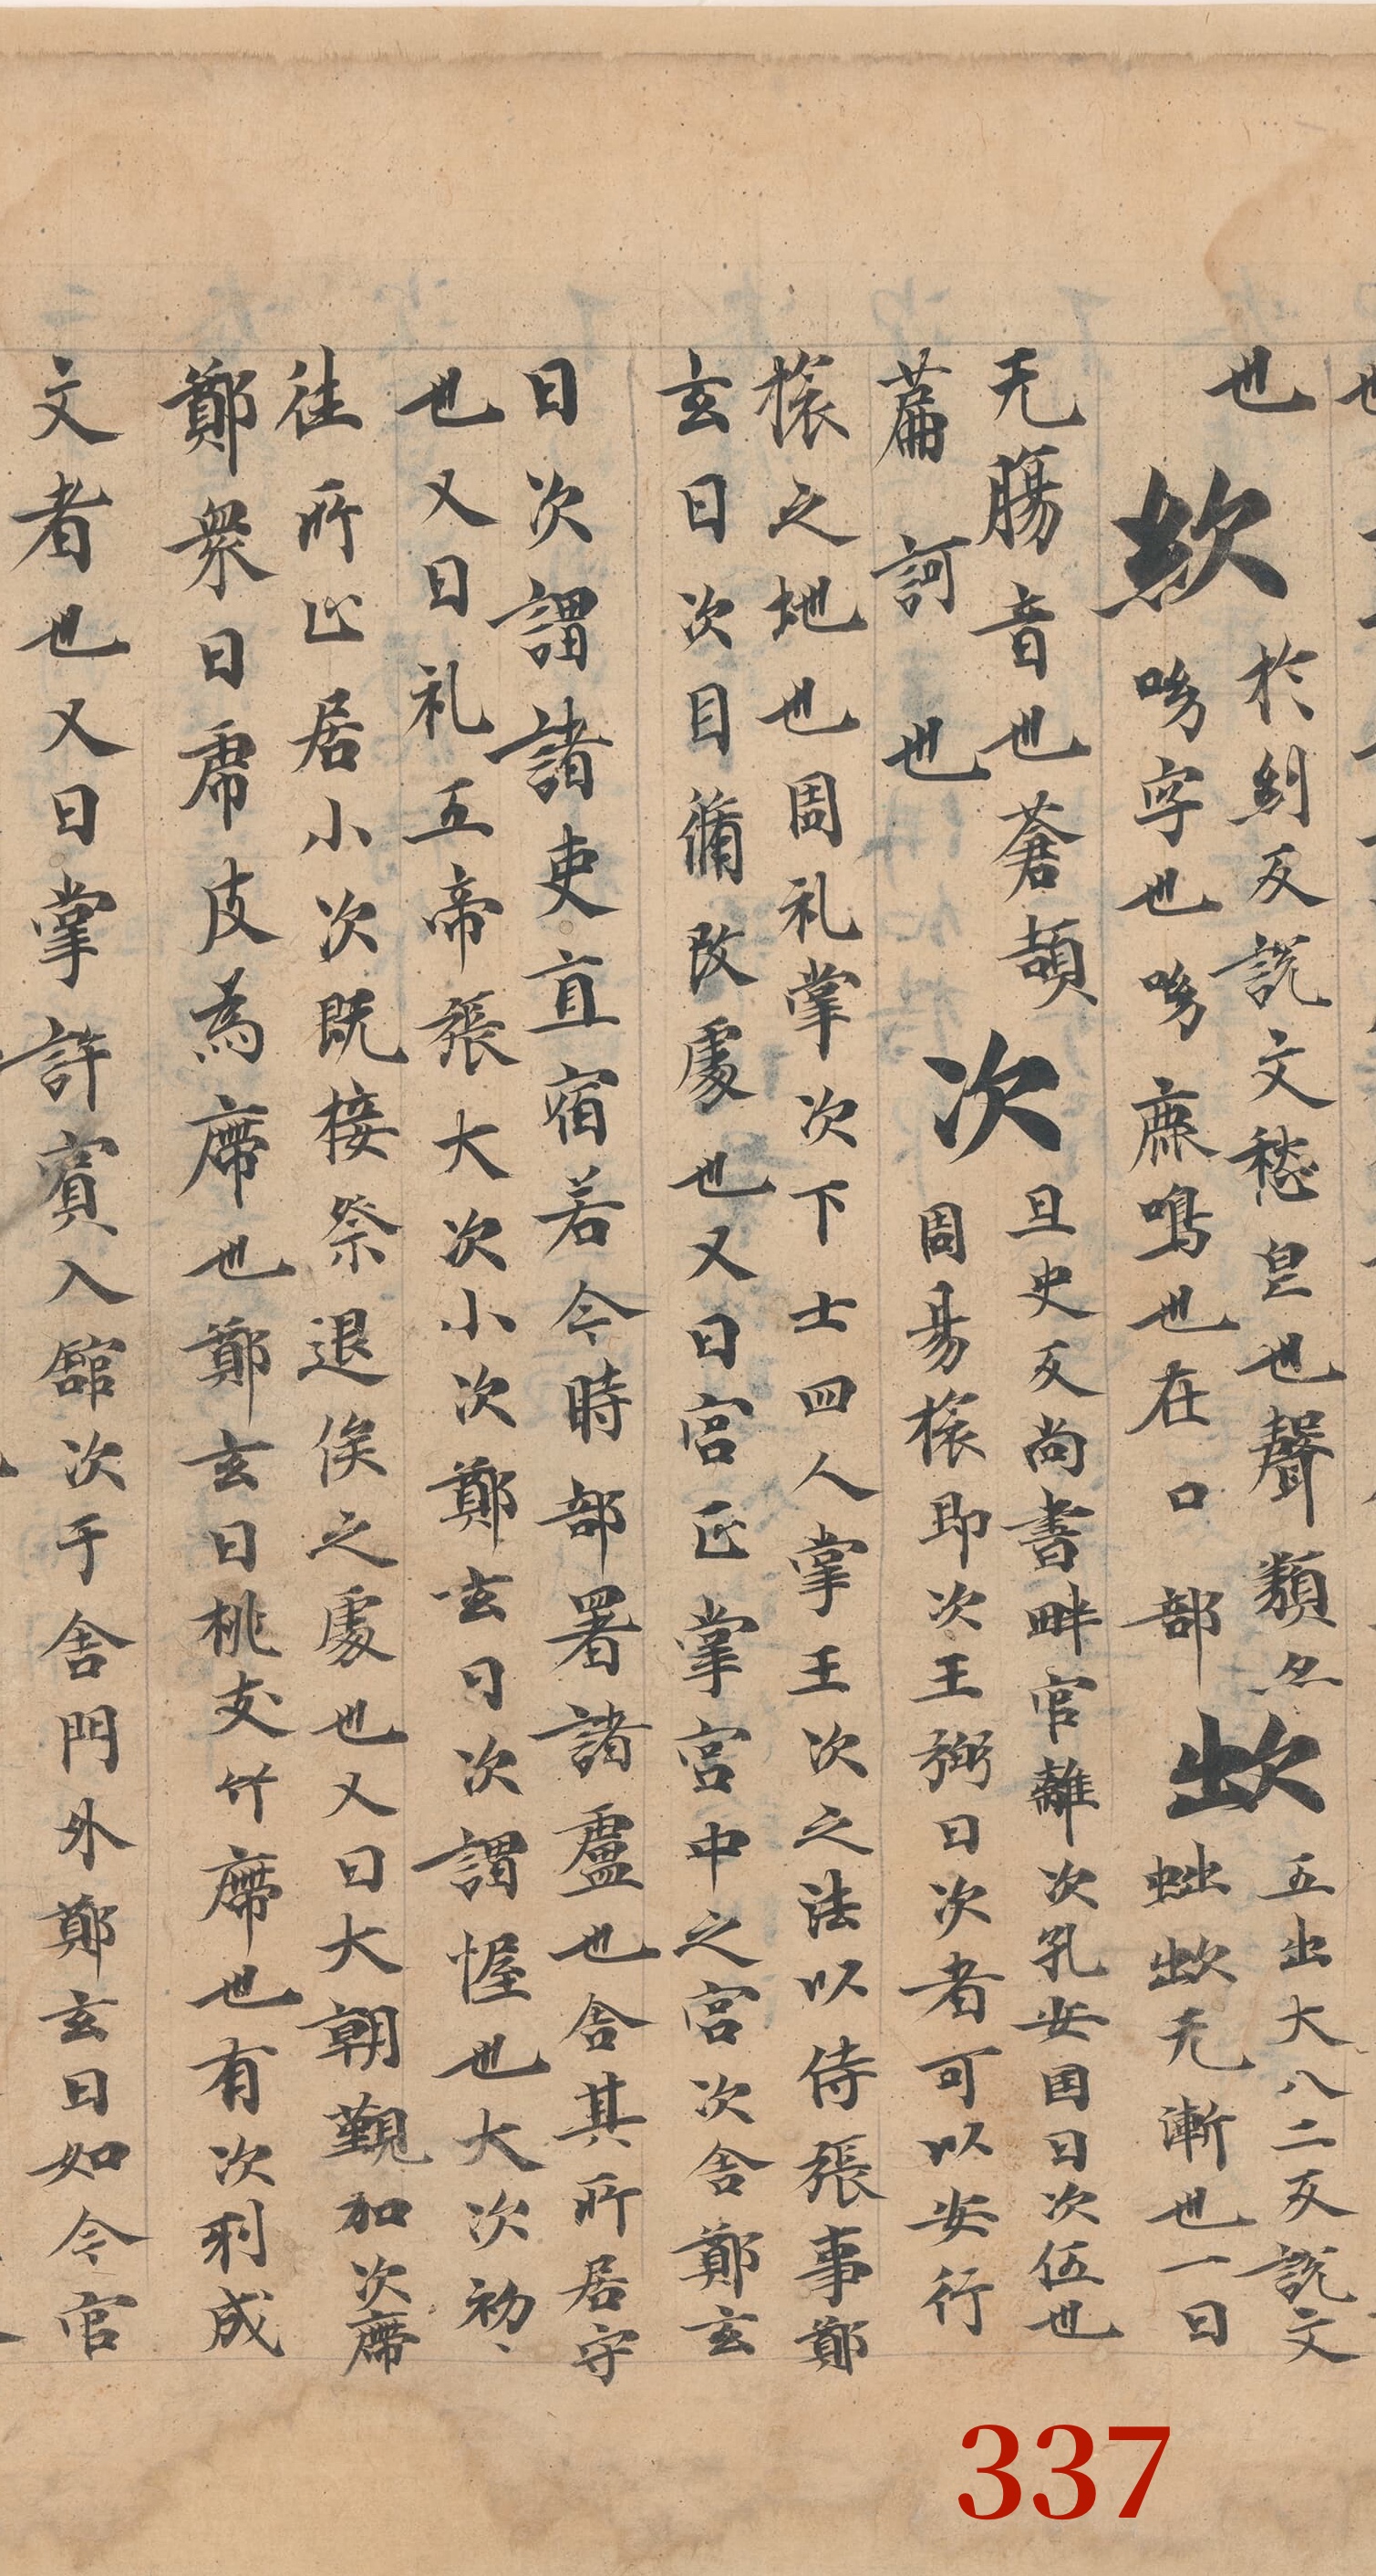 也 欸 於糾反說文愁皃也聲類亦
呦字也呦鹿鳴也在口部 㰕 五出大八二反說文
蚰㰕无慚也一曰
无膓音也蒼頡
篇訶也 次 且史反尚書畔官離次孔安国曰次伍也
周易旅即次王弼曰次者可以安行
旅之地也周礼掌次下士四人掌王次之法以侍張事鄭
玄曰次自脩改處也又曰宮正掌宮中之宮次舍鄭玄
曰次謂諸吏直宿若今時部署諸廬也舍其所居守
也又曰礼五帝張大次小次鄭玄曰次謂幄也大次初〻
往所止居小次既接祭退俟之處也又曰大朝覲加次席
鄭衆曰席皮為席也鄭玄曰桃支竹席也有次列成
文者也又曰掌訝賓入館次于舍門外鄭玄曰如今官
337